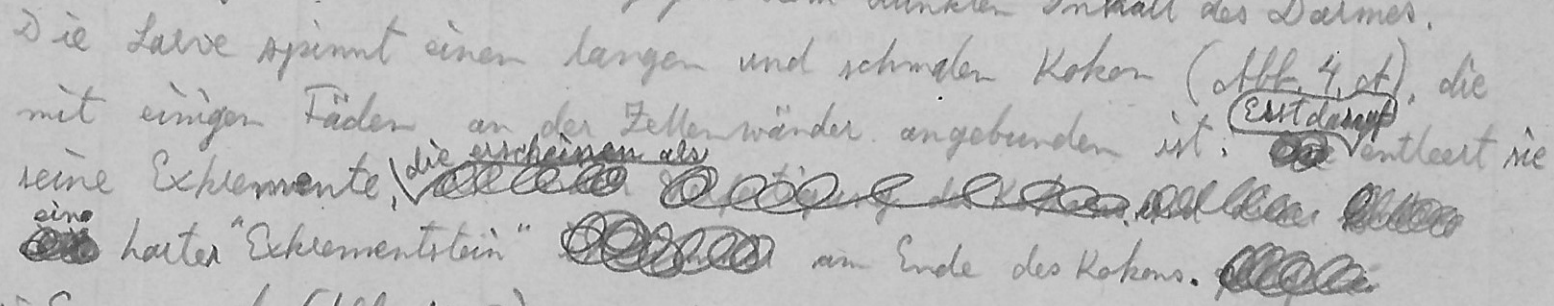 dunklen Inhalt des Darmes.
Die Larve spinnt einen langen und schmalen Kokon (Abb. 4, A), die
mit einigen Fäden an der Zellenwänder angebunden ist. Erst darauf entleert sie
seine Exkremente, die erscheinen als
eine harter "Exkrementstein" am Ende des Kokons.